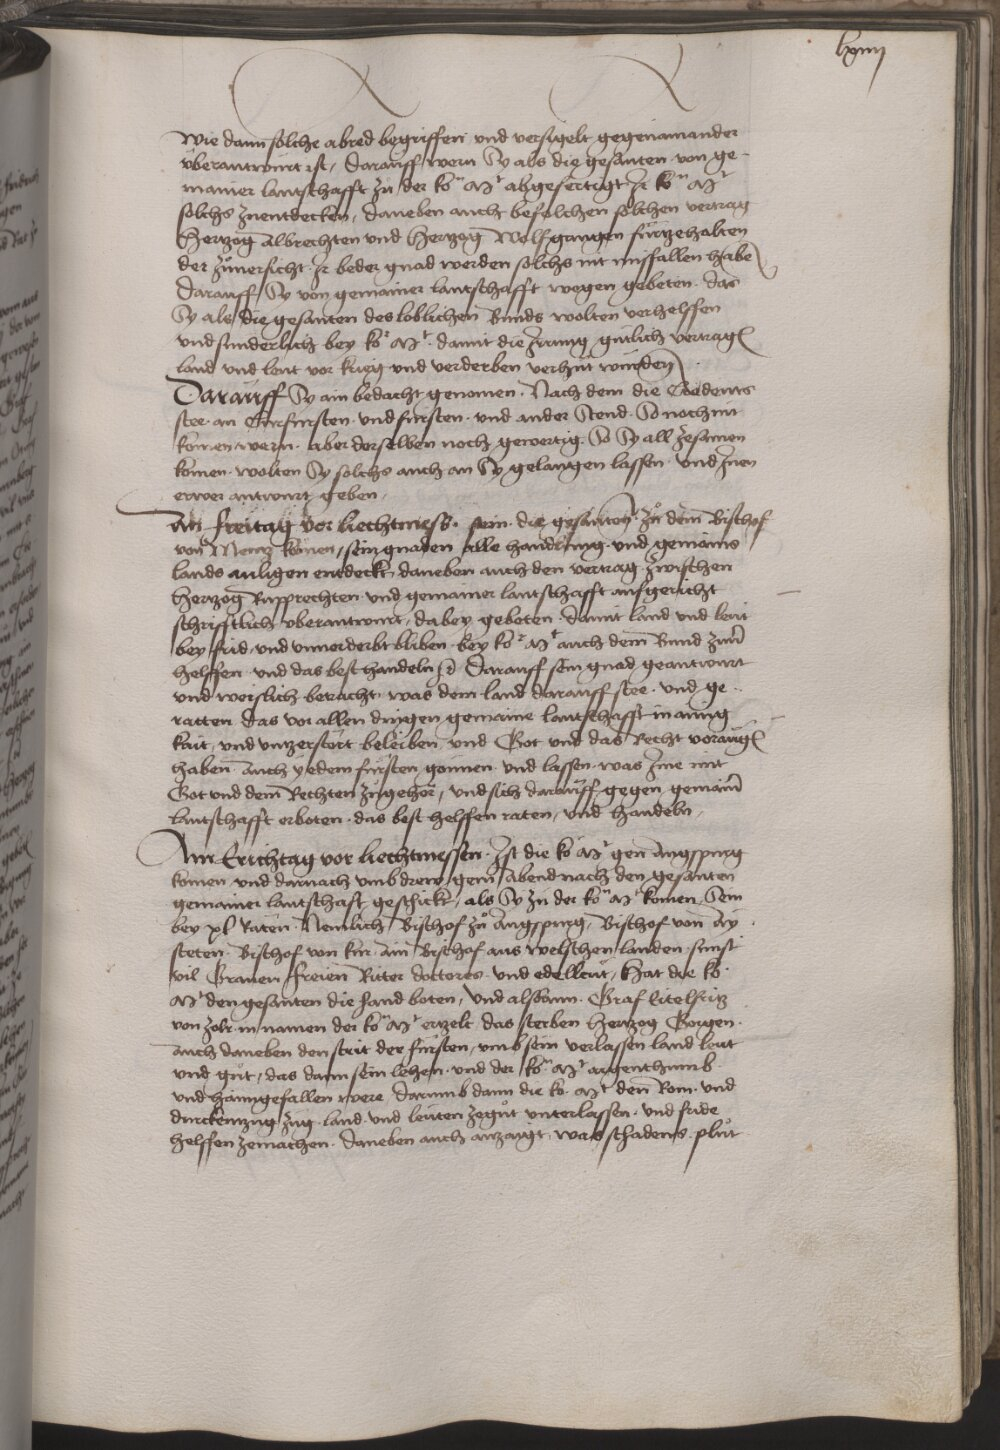 lxiiij
Wie dann solche abred begriffen und versigelt gegeneinander
überantwurt ist, Darauff wern Sy als die gesanten von ge-
mainer lantschafft zu der ko:n Mt abgefertigt Ir ko:n Mt
solchs zuentdecken, daneben auch befolchen solchen vertrag
Hertzog Albrechten und Hertzog Wolfgangen fürtzehalten
der zůuersicht Ir beder gnad werden solchs nit misfallen habe
Darauff Sy von gemainer lantschafft wegen gebeten. das
Sy als die gesanten des loblichen Bunds wolten verhelffen
und sunderlich bey ko:r Mt. damit die Irrung gütlich vertragen
land und leut vor krieg und verderben verhüt wurden
Darauff Sy ain bedacht genomen. Nach dem die
stee an Curfürsten. und fürsten. und ander Stend. So noch nit
komen wern. aber derselben noch gewertig. So Sy all zesamen
komen. wolten Sy solchs auch an Sy gelangen lassen. und Inen
antwurt geben.
An freitag vor liechtmess. sein die gesanten zů dem Bischof
von Mentz komen, sein gnaden alle handlung und gemains
lands anligen entdeckt, daneben auch den vertrag zwischen
Hertzog Rupprechten und gemainer lantschafft aufgericht
schrifftlich überantwurt, dabey gebeten. damit land und leut
bey frid und unuerderbt bliben. bey ko:r Mt auch dem Bund zum
helffen und das best handeln Darauff sein gnad geantwurt
und weislich betracht was dem land darauff stee. und ge-
ratten das vor allen dingen gemaine lantschafft in ainig-
kait, und untzerstört beleiben und Got und das Recht voraugen
haben auch yedem fürsten gonnen und lassen. was Ime mit
Got und dem Rechten zůgehör, und sich darauff gegen gemain
lantschafft erboten. das best helffen raten, und handeln,
Am Erichtag vor liechtmessen. Ist die ko Mt gen Augspurg
komen und darnach umb drew gem abend nach den gesanten
gemainer lantschafft geschickt, als Sy zu der ko:n Mt komen, Sein
bey xl Räten. Nemlich Bischof zů Augspurg, Bischof von Ay-
steten. Bischof von kur. ain Bischof aus welschen landen. sunst
vil Grauen freien Ritter doctores und edelleut, Hat die ko.
Mt den gesanten die hand boten, und alßdann. Graf Eitelfritz
von Zolr in namen der ko:n Mt ertzelt, das sterben Hertzog Gorgen.
auch daneben den strit der fürsten, umb sein verlassen land leut
und gůt, das dann sein lehen. und der ko:n Mt aigenthumb
und haimgefallen were Darumb dann die ko. Mt den Rom und
durckenzug zug land und leuten zegůt unterlassen. und fride
helffen zemachen. Daneben auch anzaigt, was schadens. plůt